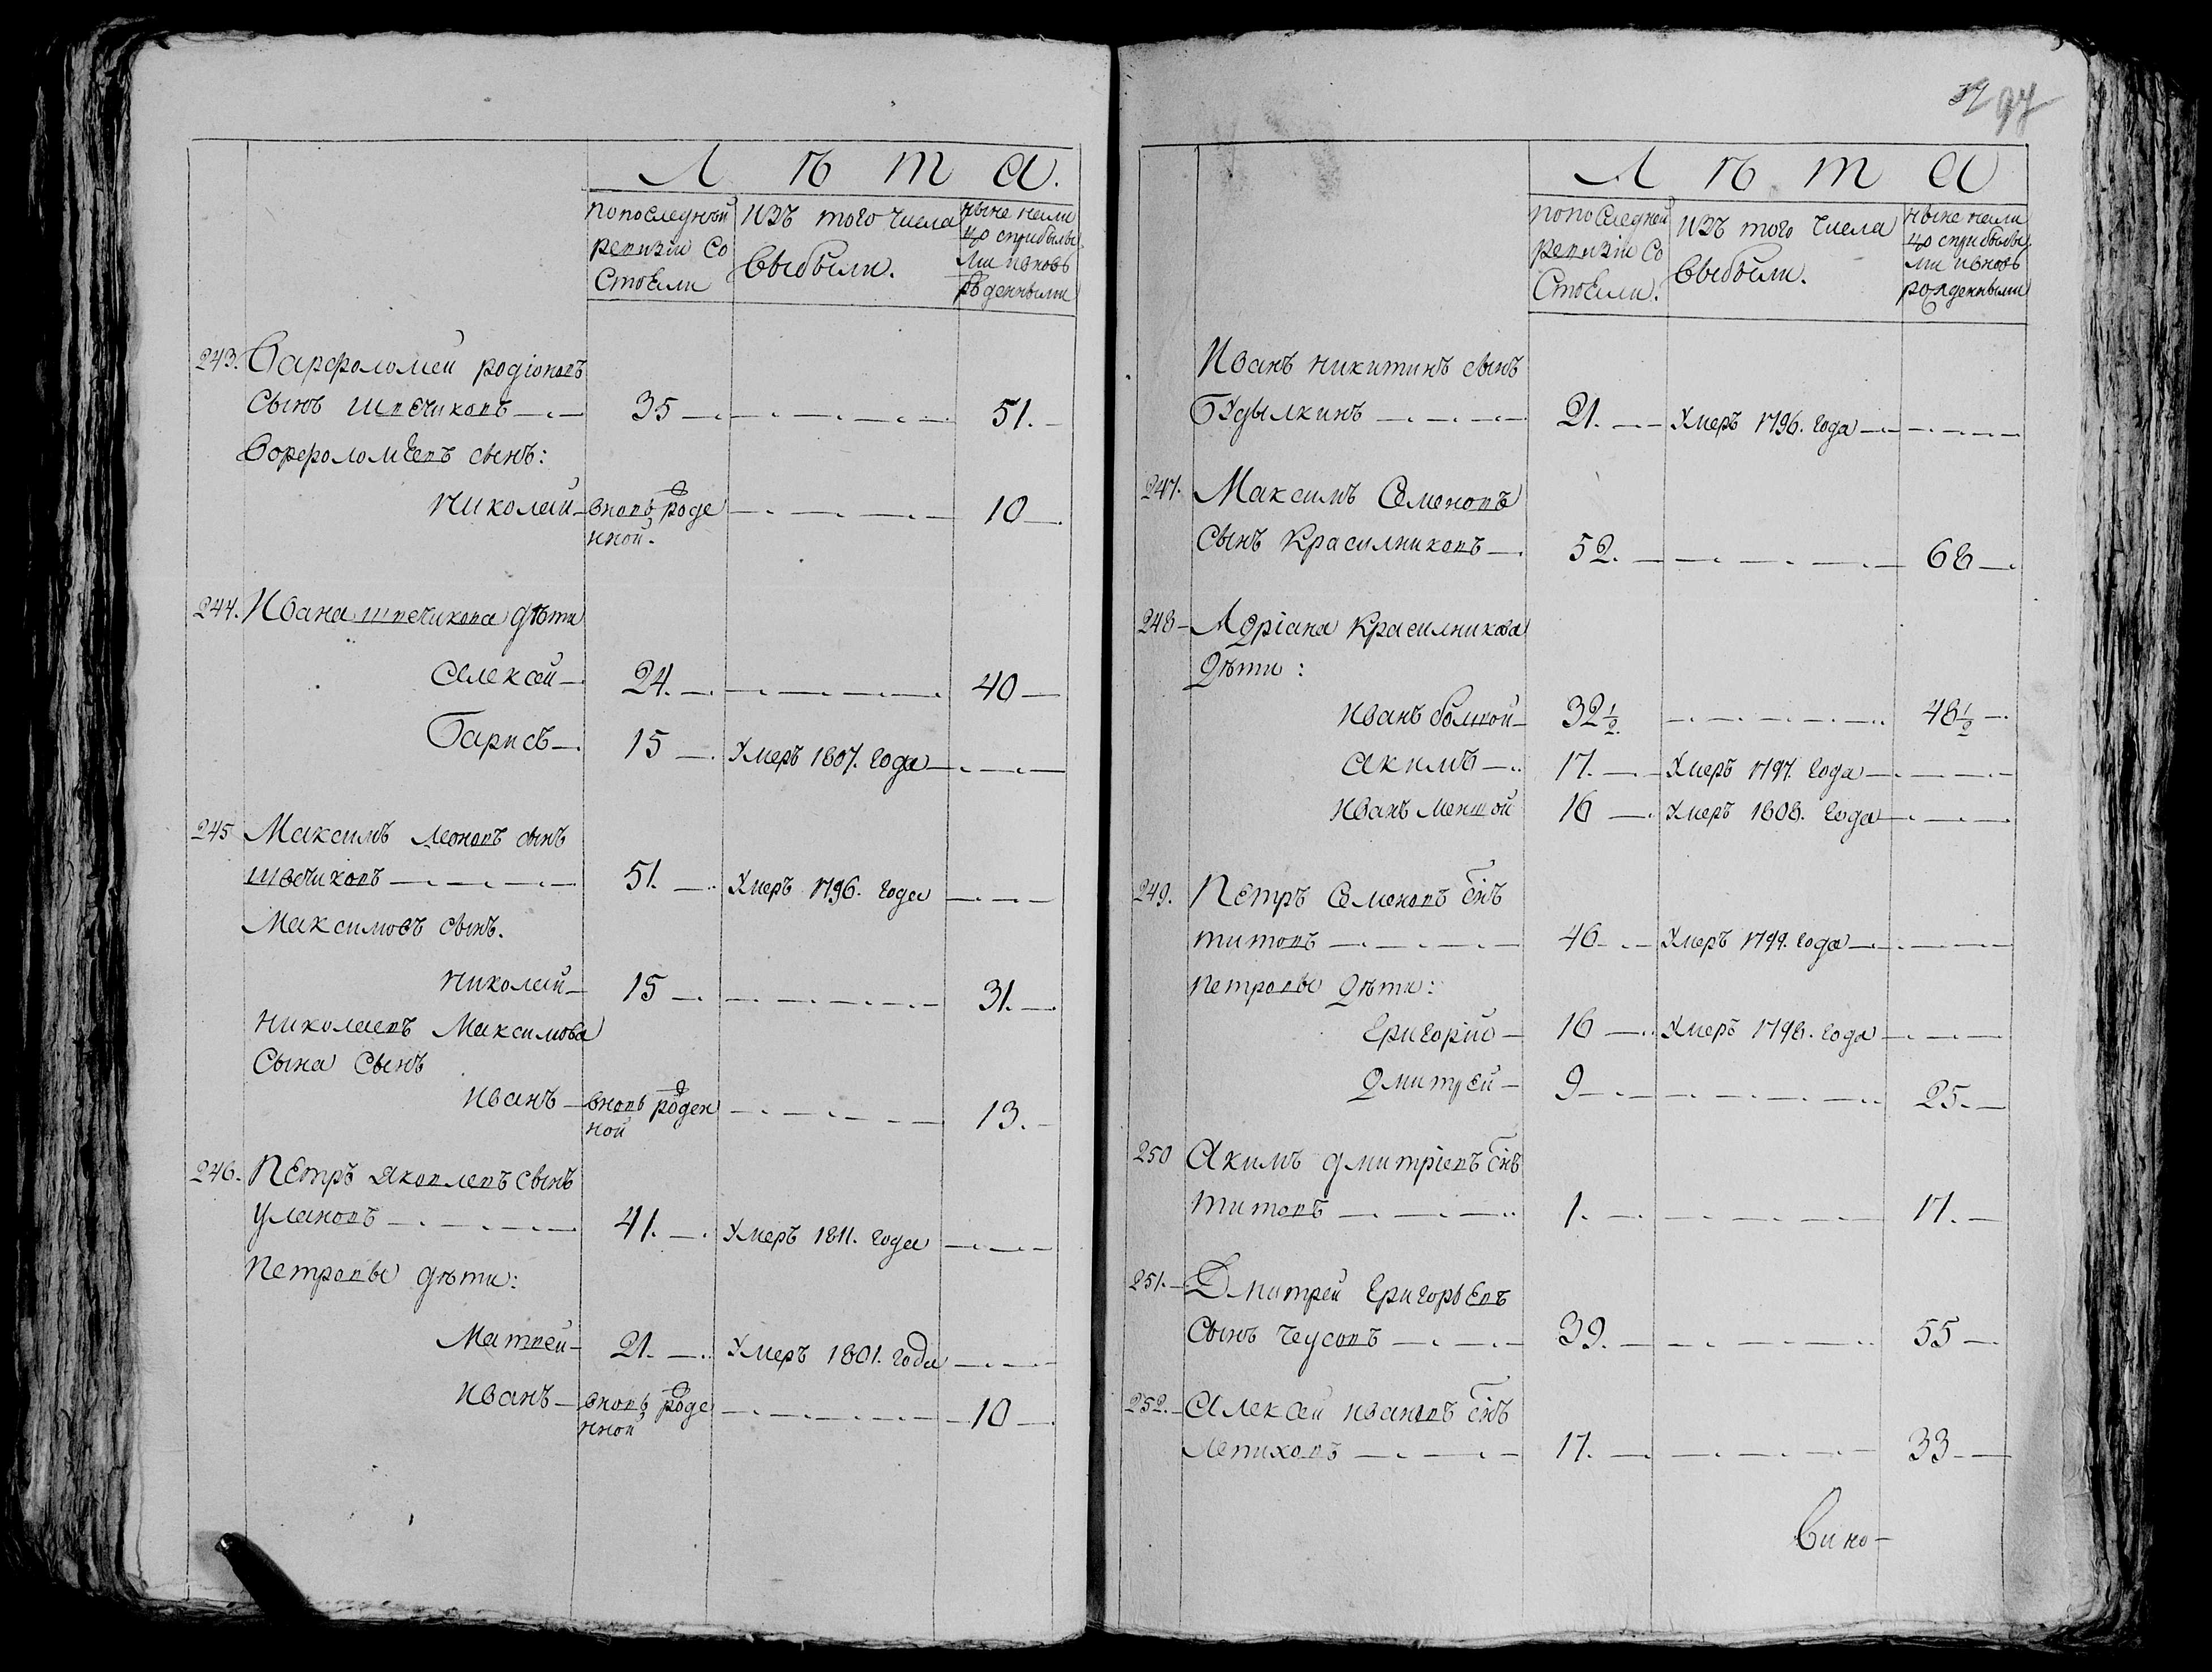 Л ѣ т а.
попоследнѣй
ревизiи со
стоели
изъ того числа
выбыли.
ныне нели
цо сприбылы
ми ивновь
рожденными
243. Варфоломей родiоновъ
сынъ швечиковъ 35 51.
Ворфоломѣевъ сынъ:
николай вновь роде 10
нной.
244. Ивана швечикова дѣти
алексей 24. 40
Барисъ 15 Умеръ 1807. года
245 Максимъ леоновъ сынъ
швечиковъ 51. Умеръ 1796. года
Максимовъ сынъ.
николай 15 31.
николаевъ Максимова
сына сынъ
иванъ вновь рожден 13.
ной
246. Петръ яковлевъ сынъ
улановъ 41. Умеръ 1811. года
Петровы дѣти:
Матвей 21. Умеръ 1801. года
иванъ вновь роде 10
нной
37 97
Л ѣ т а
попоследней
ревизiи со
стоели.
изъ того числа
выбыли.
ныне нели
цо сприбылы
ми ивновь
рожденными
Иванъ никитинъ сынъ
Будылкинъ 21. Умеръ 1796. года
247. Максимъ Семеновъ
сынъ Красилниковъ 52. 68
248 Адрiана Красилникова
дѣти:
иванъ болшой 32½ 48½
акимъ 17. Умеръ 1797. года
иванъ меншой 16 Умеръ 1808. года
249. Петръ Семеновъ снъ
титовъ 46 Умеръ 1799. года
петровы дѣти:
Григорiй 16 Умеръ 1798. года
дмитрей 9 25.
250 Акимъ дмитрiевъ снъ
титовъ 1. 17.
251. Дмитрей Григорьевъ
сынъ чеусовъ 39. 55
252. Алексей ивановъ снъ
летиховъ 17. 33
Вино-